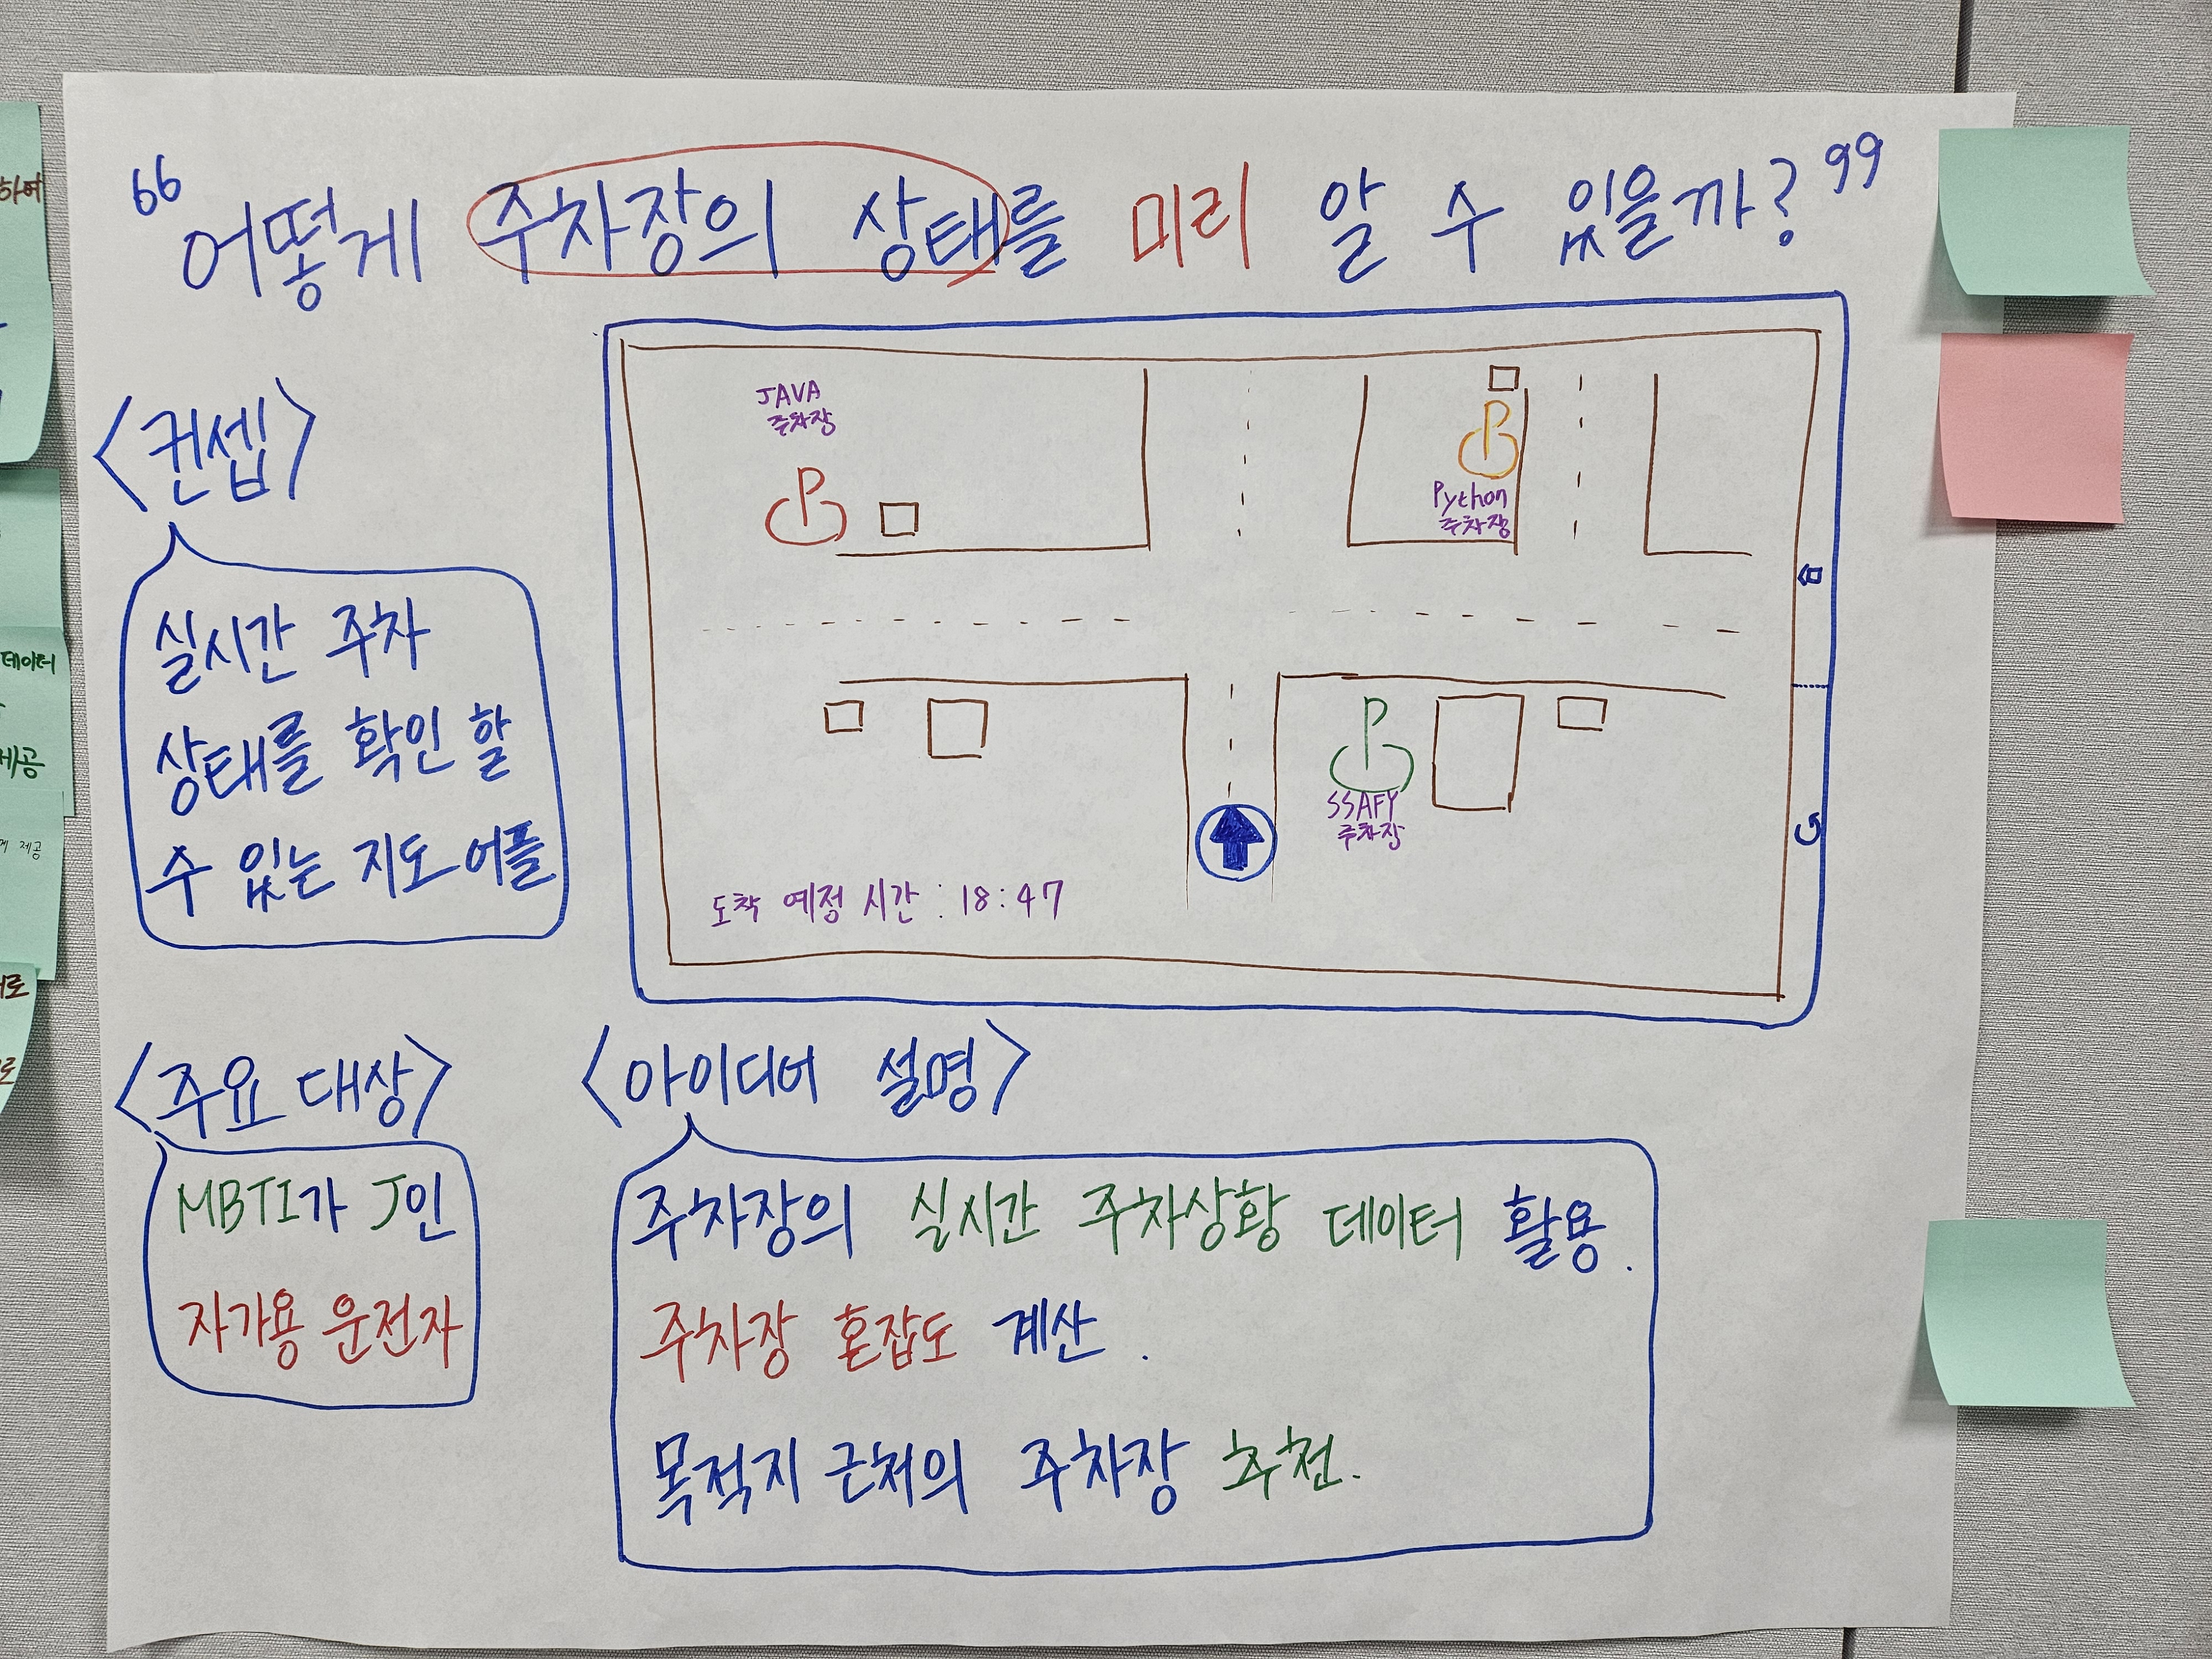 “어떻게 주차장의 상태를 미리 알 수 있을까?”
<컨셉>
실시간 주차
상태를 확인 할
수 있는 지도 어플
JAVA
주차장
P
P
Python
주차장
P
SSAFY
주차장
도착 예정 시간 : 18:47
<주요 대상>
MBTI가 J인
자가용 운전자
<아이디어 설명>
주차장의 실시간 주차상황 데이터 활용.
주차장 혼잡도 계산.
목적지 근처의 주차장 추천.
하여
데이터
제공
제공
로
로